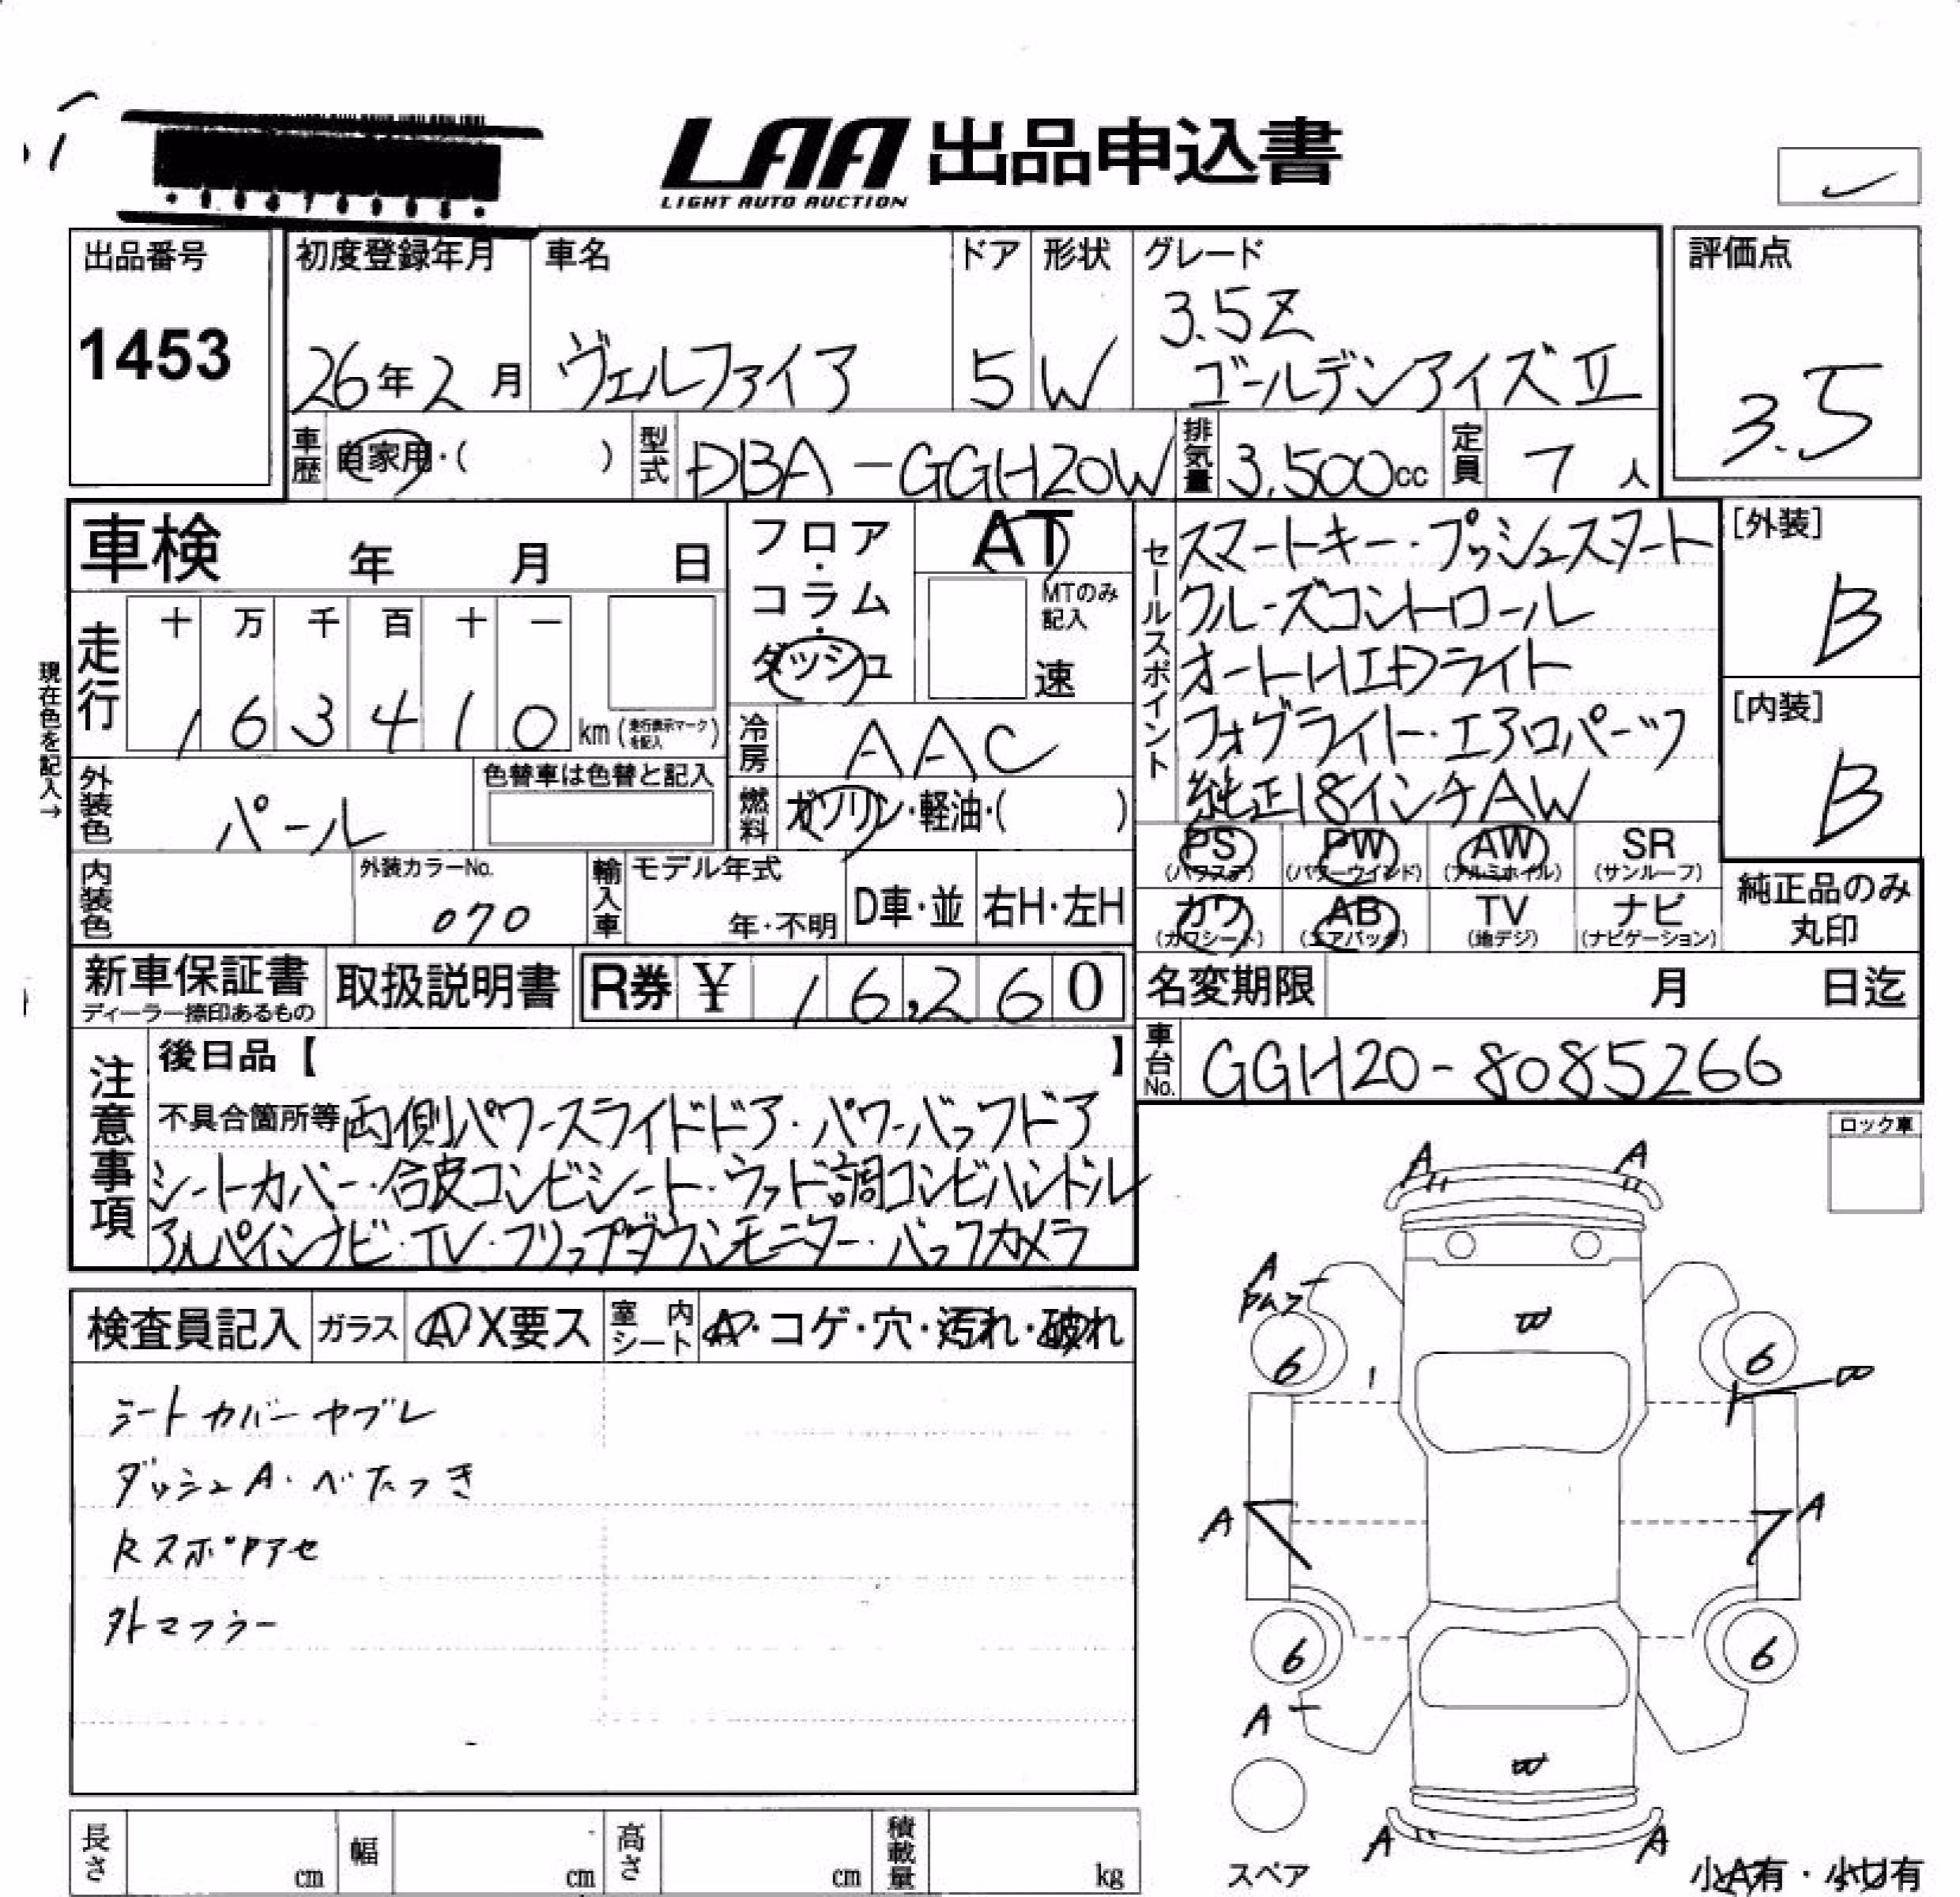 LAA 出品申込書
LIGHT AUTO AUCTION
出品番号
1453
初度登録年月
26年2月
車名
ヴェルファイア
ドア
5
形状
W
グレード
3.5Z
ゴールデンアイズⅡ
評価点
3.5
車歴
自家用・( )
型式
DBA-GGH20W
排気量
3,500cc
定員
7人
車検 年 月 日
フロア・コラム・ダッシュ
AT
MTのみ記入
速
セールスポイント
スマートキー・プッシュスタート
クルーズコントロール
オートHIDライト
フォグライト・エアロパーツ
純正18インチAW
[外装]
B
[内装]
B
現在色を記入→
走行
十 万 千 百 十 一
1 6 3 4 1 0 km (走行表示マークを記入)
冷房
AAC
外装色
パール
色替車は色替と記入
燃料
ガソリン・軽油・( )
PS (パワステ)
PW (パワーウインド)
AW (アルミホイル)
SR (サンルーフ)
カワ (カワシート)
AB (エアバッグ)
TV (地デジ)
ナビ (ナビゲーション)
純正品のみ
丸印
内装色
外装カラーNo.
070
輸入車
モデル年式
年・不明
D車・並
右H・左H
新車保証書
ディーラー捺印あるもの
取扱説明書
R券 ¥ 16,260
名変期限 月 日迄
車台No.
GGH20-8085266
注意事項
後日品【 】
不具合箇所等 両側パワースライドドア・パワーバックドア
シートカバー・合皮コンビシート・ウッド調コンビハンドル
アルパインナビ・TV・フリップダウンモニター・バックカメラ
ロック車
検査員記入
ガラス
A X要ス
室内シート
A・コゲ・穴・汚れ・破れ
シートカバーヤブレ
ダッシュA・べたつき
Rスポイアセ
外マフラー
A A
A
B
6 6
B
A A
6 6
A
B
A A
スペア
小A有・小U有
長さ cm
幅 cm
高さ cm
積載量 kg